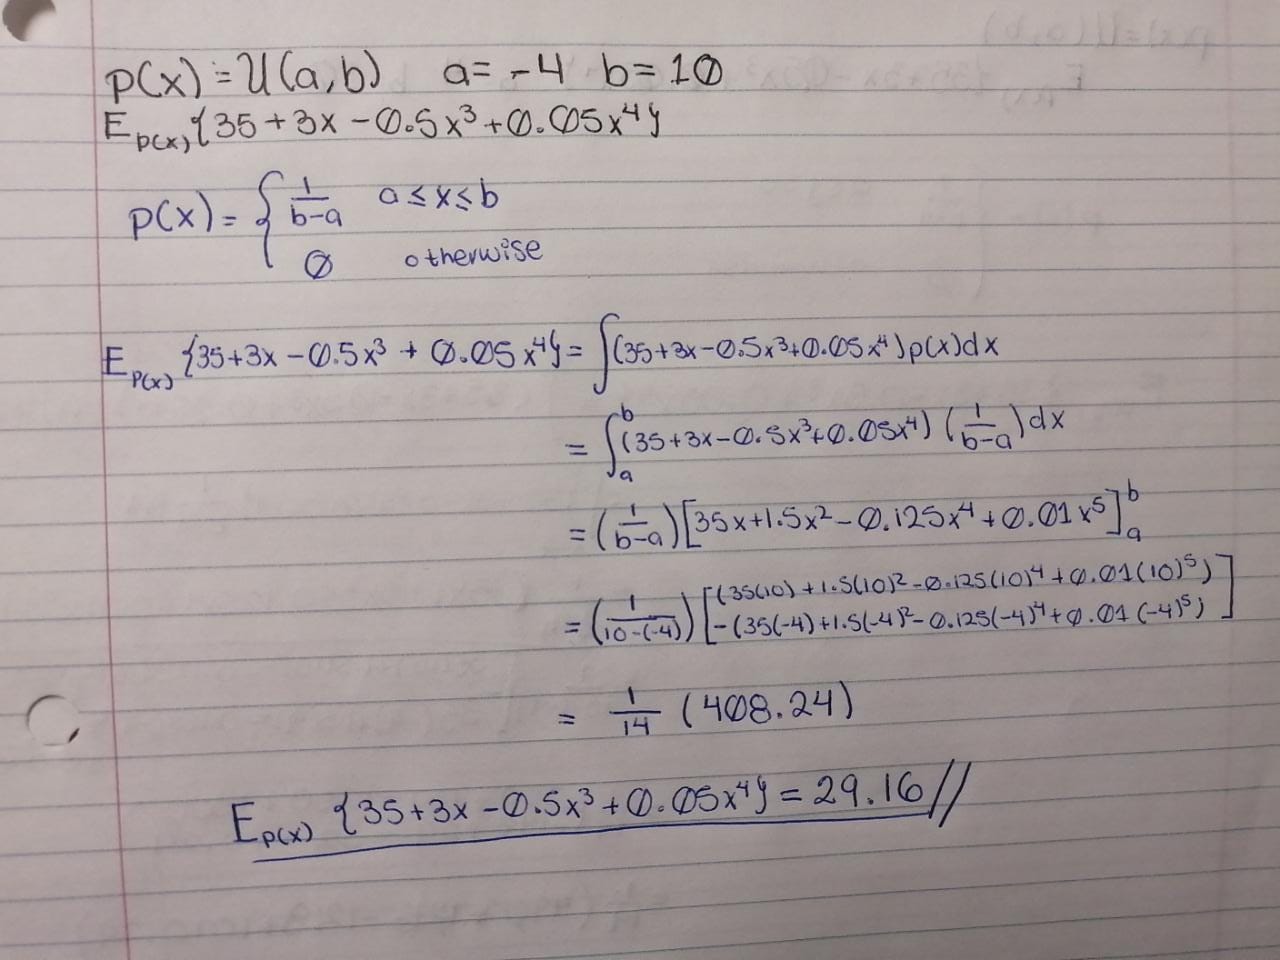 p(x) = U(a,b) a = -4 b = 10
E_p(x) {35 + 3x - 0.5x³ + 0.05x⁴}
p(x) = { 1/(b-a) a ≤ x ≤ b
0 otherwise
E_p(x) {35 + 3x - 0.5x³ + 0.05x⁴} = ∫(35 + 3x - 0.5x³ + 0.05x⁴) p(x) dx
= ∫_a^b (35 + 3x - 0.5x³ + 0.05x⁴) (1/(b-a)) dx
= (1/(b-a)) [35x + 1.5x² - 0.125x⁴ + 0.01x⁵]_a^b
= (1/(10-(-4))) [(35(10) + 1.5(10)² - 0.125(10)⁴ + 0.01(10)⁵)
- (35(-4) + 1.5(-4)² - 0.125(-4)⁴ + 0.01(-4)⁵)]
= 1/14 (408.24)
E_p(x) {35 + 3x - 0.5x³ + 0.05x⁴} = 29.16 //